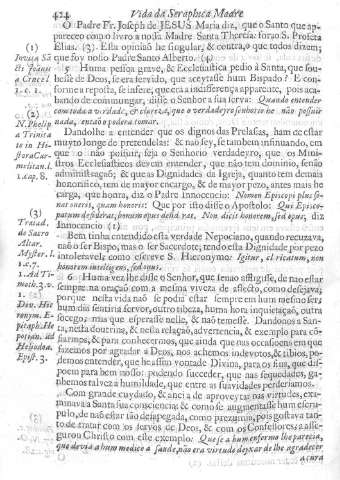 424 Vida da Seraphica Madre
O Padre Fr. Joseph de JESUS Maria diz, que o Santo que ap-
pareceo com o livro a nossa Madre Santa Theresa: foy o S. Profeta
Elias. (3). Esta opiniaõ he singular, & contra, o que todos dizem;
que foy nosso Padre Santo Alberto. (4)
5 Huma pessoa grave, & Ecclesiastica pedio à Santa, que sou-
besse de Deos, se era servido, que aceytasse hum Bispado? E con-
forme a reposta, se infere, que era a indifferença apparente, pois aca-
bando de commungar, disse o Senhor a sua serva: Quando entender
com toda a verdade, & clareza, que o verdadeyro senhorio he não possuir
nada, então o poderá tomar.
Dandolhe a entender que os dignos das Prelasias, ham de estar
muyto longe de pretendelas: & naõ sey, se tambem insinuando, em
que o não possuir, seja o Senhorio verdadeyro, que os Minis-
tros Ecclesiasticos devem entender, que não tem dominio, senão
administração; & que as Dignidades da Igreja, quanto tem de mais
honorifico, tem de mayor encargo, & de mayor pezo, antes mais he
carga, que honra, diz o Padre Innocencio: Nomen Episcopi plus so-
nat oneris, quam honoris: Que por isso disse o Apostolo: Qui Episco-
patum desiderat, bonum opus desiderat. Non dicit honorem, sed opus, diz
Innocencio (1)
Bem tinha entendido esta verdade Nepociano, quando recusava,
naõ o ser Bispo, mas o ser Sacerdote; tendo esta Dignidade por pezo
intoleravel: como escreve S. Hieronymo: Igitur, clericatum, non
honorem intelligens, sed opus.
Huma vez lhe disse o Senhor, que tenao affligisse, de não estar
sempre na oração com a mesma viveza de affecto, como desejava;
porque nesta vida naõ se podia estar sempre em hum mesmo ser:
hum dia sentiria fervor, outro tibeza, huma hora inquietação, outra
socego: mas que esperasse nelle, & naõ temesse. Dandonos a San-
ta, nesta doutrina, & nesta relação, advertencia, & exemplo para cõ-
fiarmos, & para conhecermos, que ainda que nas occasioens em que
fazemos por agradar a Deos, nos achemos indevotos, & tibios, po-
demos entender, que he assim vontade Divina, para os fins, que dis-
poem para bem nosso: podendo succeder, que nas sequedades, ga-
nhemos talvez a humildade, que entre as suavidades perderiamos.
Com grande cuydado, & ancia de aproveytar nas virtudes, exa-
minava a Santa sua consciencia; & como se augmentasse hum escru-
pulo, de naõ estar tão desapegada, como prezumia, pois gostava tan-
to de tratar com os servos de Deos, & com os Confessores, a asse-
gurou Christo com este exemplo: Que se a hum enfermo lhe parecia,
que devia a hum medico a saude, não era virtude deyxar de lhe agradecer
a cura
(1)
(2)
1. cap. 8.
(3)
de Sacro
Altar.
Myster. l.
1. c. 7.
1. Ad Ti-
moth. 3. v.
1.
Epist. 3.